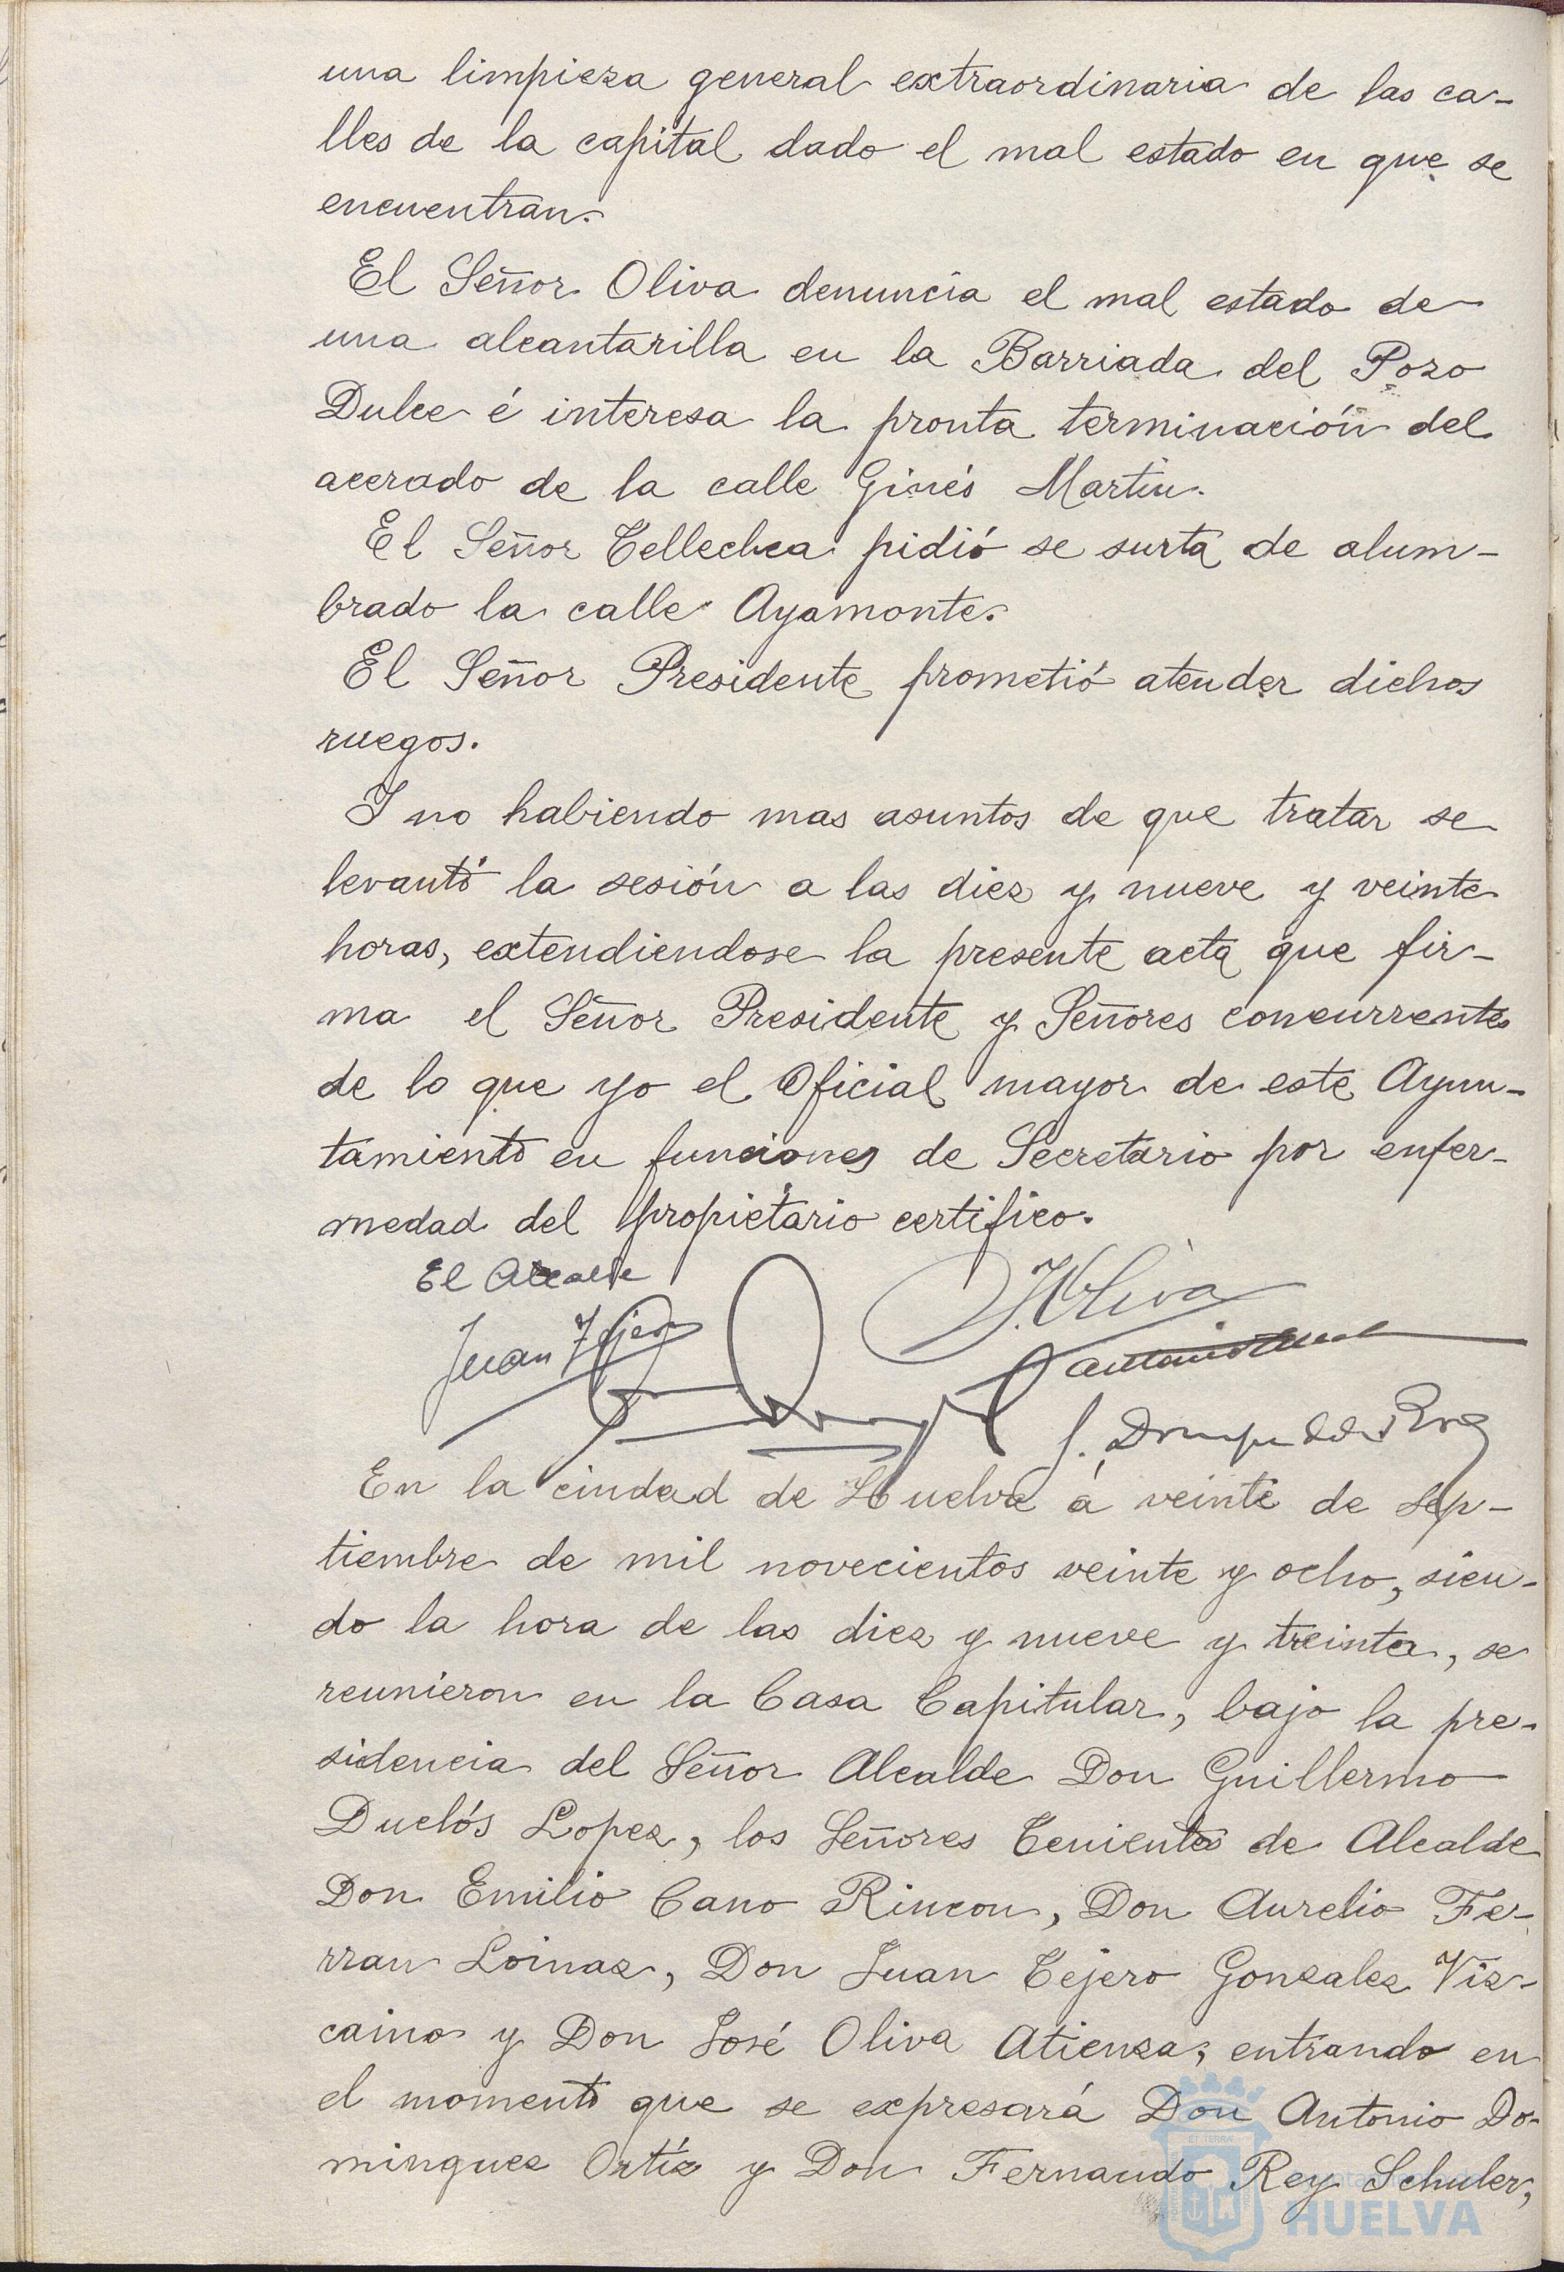 una limpieza general extraordinaria de las ca-
lles de la capital dado el mal estado en que se
encuentran.
El Señor Oliva denuncia el mal estado de
una alcantarilla en la Barriada del Pozo
Dulce é interesa la pronta terminación del
acerado de la calle Ginés Martin.
El Señor Tellechea pidió se surta de alum-
brado la calle Ayamonte.
El Señor Presidente prometió atender dichos
ruegos.
Y no habiendo mas asuntos de que tratar se
levantó la sesión a las diez y nueve y veinte
horas, extendiendose la presente acta que fir-
ma el Señor Presidente y Señores concurrentes
de lo que yo el Oficial mayor de este Ayun-
tamiento en funciones de Secretario por enfer-
medad del propietario certifico.
El Alcalde
Juan Tejero
J. Oliva
Antonio
En la ciudad de Huelva á veinte de sep-
tiembre de mil novecientos veinte y ocho, sien-
do la hora de las diez y nueve y treinta, se
reunieron en la Casa Capitular, bajo la pre-
sidencia del Señor Alcalde Don Guillermo
Duclós Lopez, los Señores Tenientes de Alcalde
Don Emilio Cano Rincon, Don Aurelio Fe-
rran Loinaz, Don Juan Tejero Gonzalez Viz-
caino y Don José Oliva Atienza, entrando en
el momento que se expresará Don Antonio Do-
minguez Ortíz y Don Fernando Rey Schuler,
HUELVA